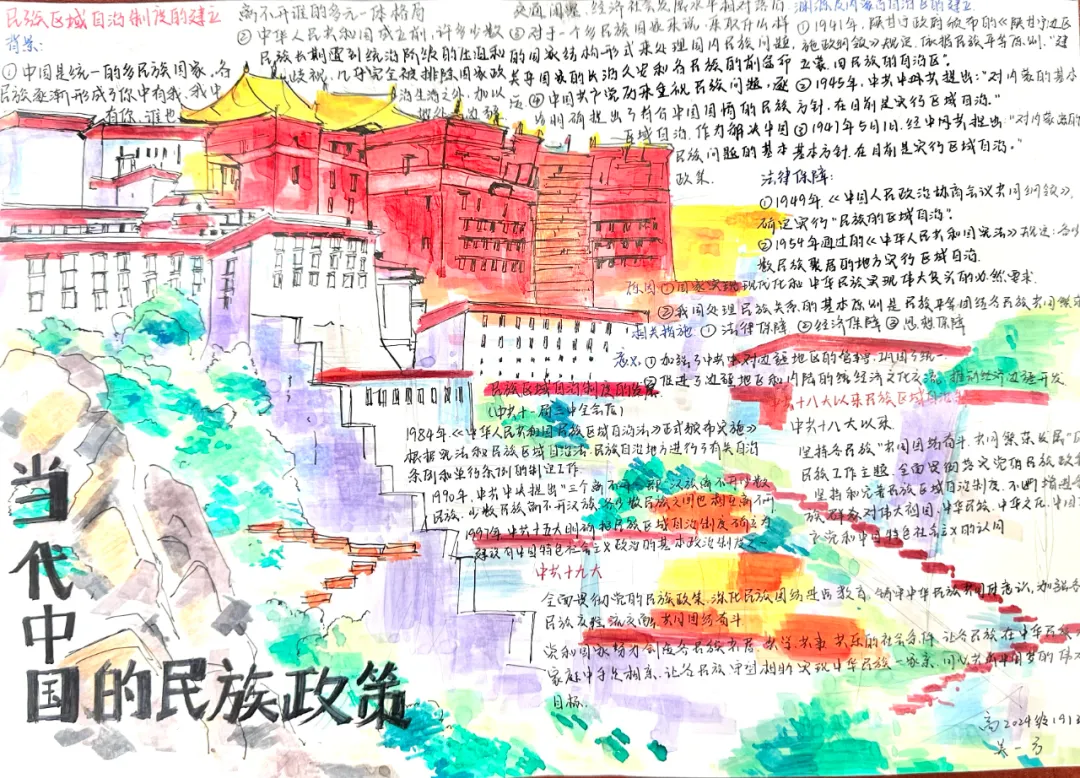 民族区域自治制度的建立
背景:
①中国是统一的多民族国家,各
民族逐渐形成了你中有我,我中
有你,谁也
离不开谁的多元一体格局
②中华人民共和国成立前,许多少数
民族长期遭到统治阶级的压迫和
歧视,几乎完全被排除国家政
治生活之外,加以
交通闭塞,经济社会发展水平相对落后
③对于一个多民族国家来说,采取什么样
的国家结构形式来处理国内民族问题,
关乎国家的长治久安和各民族的前途命
④中国共产党历来重视民族问题,逐
明确提出了符合中国国情的民族
区域自治,作为解决中国
民族问题的基本
政策.
①1941年,陕甘宁政府颁布的《陕甘宁边区
施政纲领》规定,依据民族平等原则,"建
立蒙、回民族的自治区。
②1945年,中共中央提出:"对内蒙的基本
方针,在目前是实行区域自治。"
③1947年5月1日,经中共提出:"对内蒙治的
基本方针,在目前是实行区域自治。"
法律保障:
①1949年《中国人民政治协商会议共同纲领》,
确定实行"民族的区域自治".
②1954年通过的《中华人民共和国宪法》规定:各少
数民族聚居的地方实行区域自治.
原因:①国家实现现代化和中华民族实现伟大复兴的必然要求
②我国处理民族关系的基本原则是民族平等团结各民族共同繁荣
相关措施 ①法律保障 ②经济保障 ③思想保障
意义:①加强了中央对边疆地区的管辖,巩固了统一
②促进了边疆地区和内陆的经济文化交流,推动经济边疆开发
民族区域自治制度的发展
(中共十一届三中全会后)
1984年,《中华人民共和国民族区域自治法》正式颁布实施》
根据宪法和民族区域自治法,民族自治地方进行了有关自治
条例和单行条例的制定工作.
1990年,中共中央提出"三个离不开",即汉族离不开少数
民族,少数民族离不开汉族,各少数民族之间也相互离不开
1997年,中共十五大明确把民族区域自治制度确立为
建设有中国特色社会主义政治的基本政治制度之一
中共十八大以来民族区域自治
中共十八大以来.
坚持各民族"共同团结奋斗,共同繁荣发展"
民族工作主题,全面贯彻落实党的民族政策
坚持和完善民族区域自治制度,不断增进各
族群众对伟大祖国、中华民族、中华文化、中国
和中国特色社会主义的认同
中共十九大
全面贯彻党的民族政策,深化民族团结进步教育,铸牢中华民族共同体意识,加强各
民族交往交流交融,共同团结奋斗
党和国家努力创造各民族共居、共学、共事、共乐的社会条件,让各民族在中华民族大
家庭中手足相亲,让各民族守望相助实现中华民族一家亲,同心共筑中国梦的伟大
目标.
高2024级191
吴一方
当代中国的民族政策